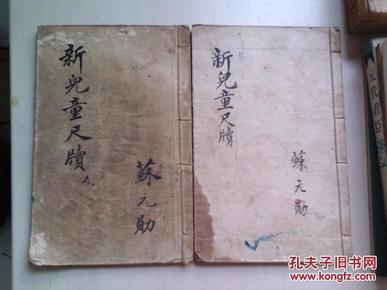 新兒童尺牘
蘇元勛
新兒童尺牘
蘇元勛
元代
孔夫子旧书网
KONGFZ.COM